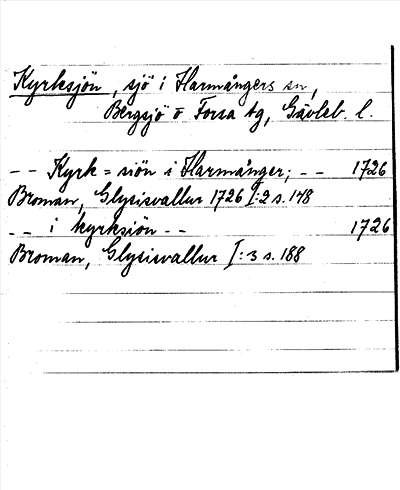 Kyrksjön, sjö i Harmångers sn,
Bergsjö o Forsa tg, Gävleb. l.
-- Kyrk = siön i Harmånger; -- 1726
Broman, Glysisvallur 1726 I:2 s. 148
-- i kyrksiön -- 1726
Broman, Glysisvallur I:3 s. 188